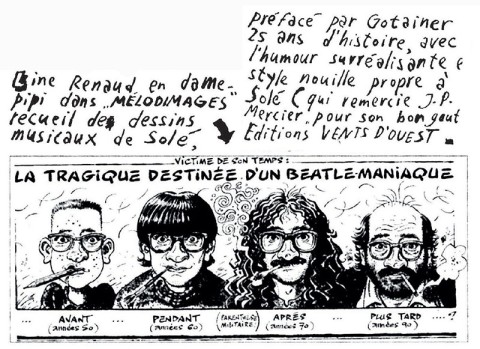 Line Renaud en dame-
pipi dans "MÉLODIMAGES
recueil des dessins
musicaux de Solé,
préfacé par Gotainer
25 ans d'histoire, avec
l'humour surréalisante e
style nouille propre à
Solé (qui remercie J.-P.
Mercier pour son bon gout
Editions VENTS D'OUEST
VICTIME DE SON TEMPS :
LA TRAGIQUE DESTINÉE D'UN BEATLE-MANIAQUE
... AVANT ... PENDANT (PARENTHÈSE APRÈS ... PLUS TARD ....?
(années 50) (années 60) MILITAIRE) (années 70) (années 90)